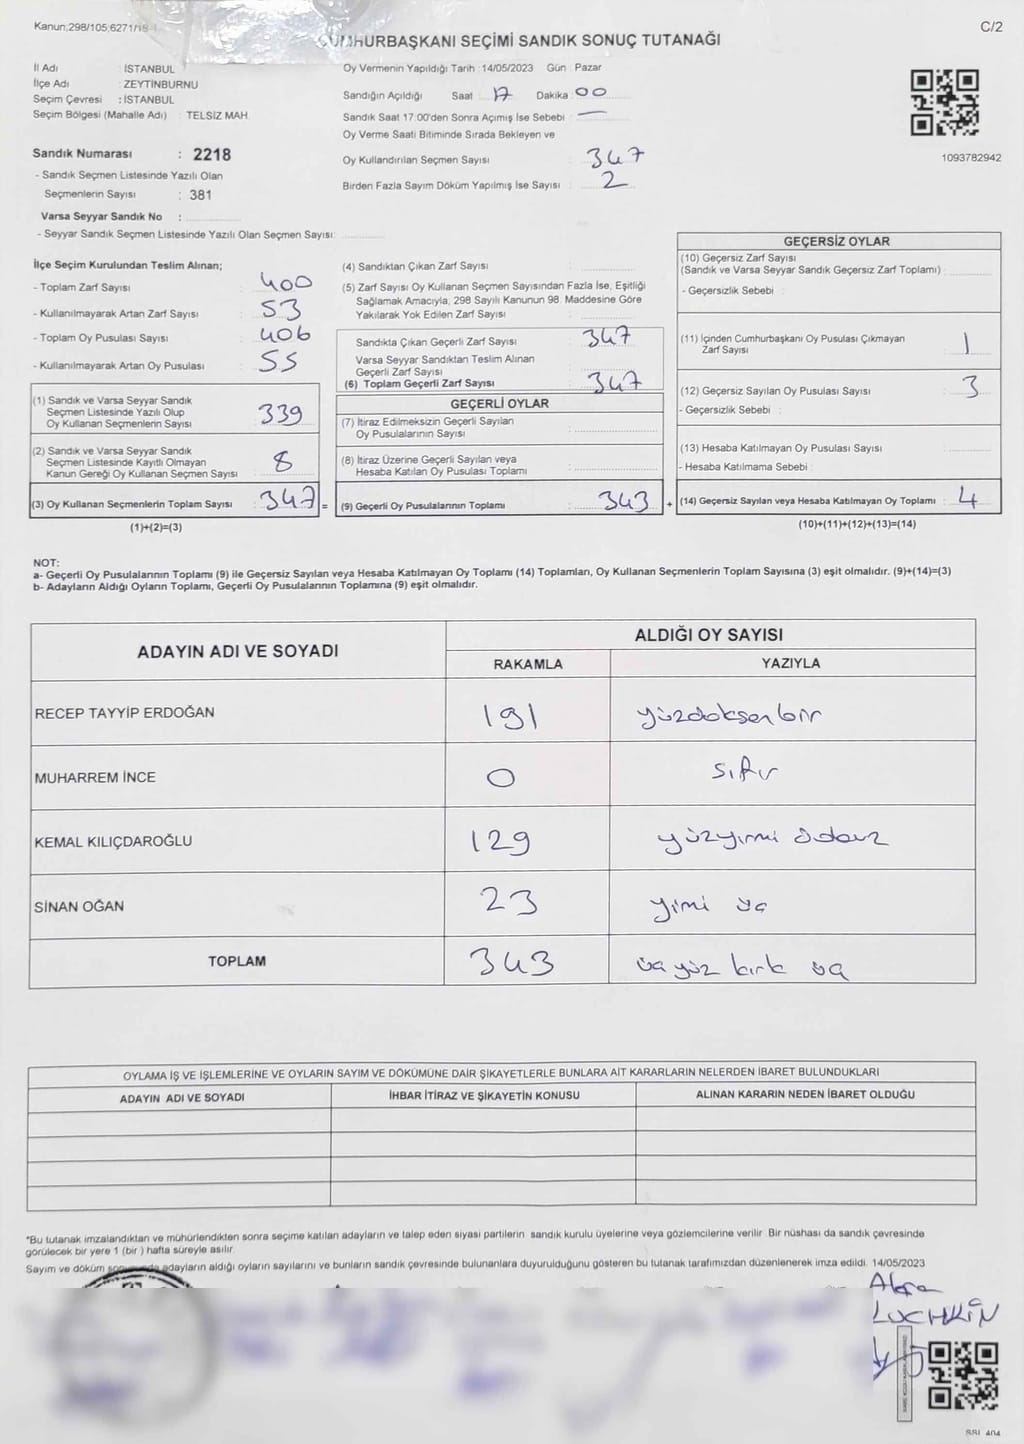 Kanun;298/105;6271/18-1
C/2
CUMHURBAŞKANI SEÇİMİ SANDIK SONUÇ TUTANAĞI
İl Adı : İSTANBUL
İlçe Adı : ZEYTİNBURNU
Seçim Çevresi : İSTANBUL
Seçim Bölgesi (Mahalle Adı) : TELSİZ MAH.
Sandık Numarası : 2218
- Sandık Seçmen Listesinde Yazılı Olan
Seçmenlerin Sayısı : 381
Varsa Seyyar Sandık No :
- Seyyar Sandık Seçmen Listesinde Yazılı Olan Seçmen Sayısı:
Oy Vermenin Yapıldığı Tarih :14/05/2023 Gün : Pazar
Sandığın Açıldığı Saat : 17 Dakika : 00
Sandık Saat 17:00'den Sonra Açımış İse Sebebi : —
Oy Verme Saati Bitiminde Sırada Bekleyen ve
Oy Kullandırılan Seçmen Sayısı : 347
Birden Fazla Sayım Döküm Yapılmış İse Sayısı : 2
1093782942
İlçe Seçim Kurulundan Teslim Alınan;
- Toplam Zarf Sayısı : 400
- Kullanılmayarak Artan Zarf Sayısı : 53
- Toplam Oy Pusulası Sayısı : 406
- Kullanılmayarak Artan Oy Pusulası : 55
(1) Sandık ve Varsa Seyyar Sandık
Seçmen Listesinde Yazılı Olup
Oy Kullanan Seçmenlerin Sayısı : 339
(2) Sandık ve Varsa Seyyar Sandık
Seçmen Listesinde Kayıtlı Olmayan
Kanun Gereği Oy Kullanan Seçmen Sayısı : 8
(3) Oy Kullanan Seçmenlerin Toplam Sayısı : 347 =
(1)+(2)=(3)
(4) Sandıktan Çıkan Zarf Sayısı :
(5) Zarf Sayısı Oy Kullanan Seçmen Sayısından Fazla İse, Eşitliği
Sağlamak Amacıyla, 298 Sayılı Kanunun 98. Maddesine Göre
Yakılarak Yok Edilen Zarf Sayısı :
Sandıkta Çıkan Geçerli Zarf Sayısı : 347
Varsa Seyyar Sandıktan Teslim Alınan
Geçerli Zarf Sayısı :
(6) Toplam Geçerli Zarf Sayısı : 347
GEÇERLİ OYLAR
(7) İtiraz Edilmeksizin Geçerli Sayılan
Oy Pusulalarının Sayısı :
(8) İtiraz Üzerine Geçerli Sayılan veya
Hesaba Katılan Oy Pusulası Toplamı :
(9) Geçerli Oy Pusulalarının Toplamı : 343 +
GEÇERSİZ OYLAR
(10) Geçersiz Zarf Sayısı
(Sandık ve Varsa Seyyar Sandık Geçersiz Zarf Toplamı) :
- Geçersizlik Sebebi :
(11) İçinden Cumhurbaşkanı Oy Pusulası Çıkmayan
Zarf Sayısı : 1
(12) Geçersiz Sayılan Oy Pusulası Sayısı : 3
- Geçersizlik Sebebi :
(13) Hesaba Katılmayan Oy Pusulası Sayısı :
- Hesaba Katılmama Sebebi :
(14) Geçersiz Sayılan veya Hesaba Katılmayan Oy Toplamı : 4
(10)+(11)+(12)+(13)=(14)
NOT:
a- Geçerli Oy Pusulalarının Toplamı (9) ile Geçersiz Sayılan veya Hesaba Katılmayan Oy Toplamı (14) Toplamları, Oy Kullanan Seçmenlerin Toplam Sayısına (3) eşit olmalıdır. (9)+(14)=(3)
b- Adayların Aldığı Oyların Toplamı, Geçerli Oy Pusulalarının Toplamına (9) eşit olmalıdır.
ADAYIN ADI VE SOYADI
ALDIĞI OY SAYISI
RAKAMLA YAZIYLA
RECEP TAYYİP ERDOĞAN 191 yüzdoksan bir
MUHARREM İNCE 0 sıfır
KEMAL KILIÇDAROĞLU 129 yüzyirmi dokuz
SİNAN OĞAN 23 yirmi üç
TOPLAM 343 üç yüz kırk üç
OYLAMA İŞ VE İŞLEMLERİNE VE OYLARIN SAYIM VE DÖKÜMÜNE DAİR ŞİKAYETLERLE BUNLARA AİT KARARLARIN NELERDEN İBARET BULUNDUKLARI
ADAYIN ADI VE SOYADI İHBAR İTİRAZ VE ŞİKAYETİN KONUSU ALINAN KARARIN NEDEN İBARET OLDUĞU
*Bu tutanak imzalandıktan ve mühürlendikten sonra seçime katılan adayların ve talep eden siyasi partilerin sandık kurulu üyelerine veya gözlemcilerine verilir. Bir nüshası da sandık çevresinde
görülecek bir yere 1 (bir ) hafta süreyle asılır.
Sayım ve döküm sonunda adayların aldığı oyların sayılarını ve bunların sandık çevresinde bulunanlara duyurulduğunu gösteren bu tutanak tarafımızdan düzenlenerek imza edildi. 14/05/2023
LUCHKİN